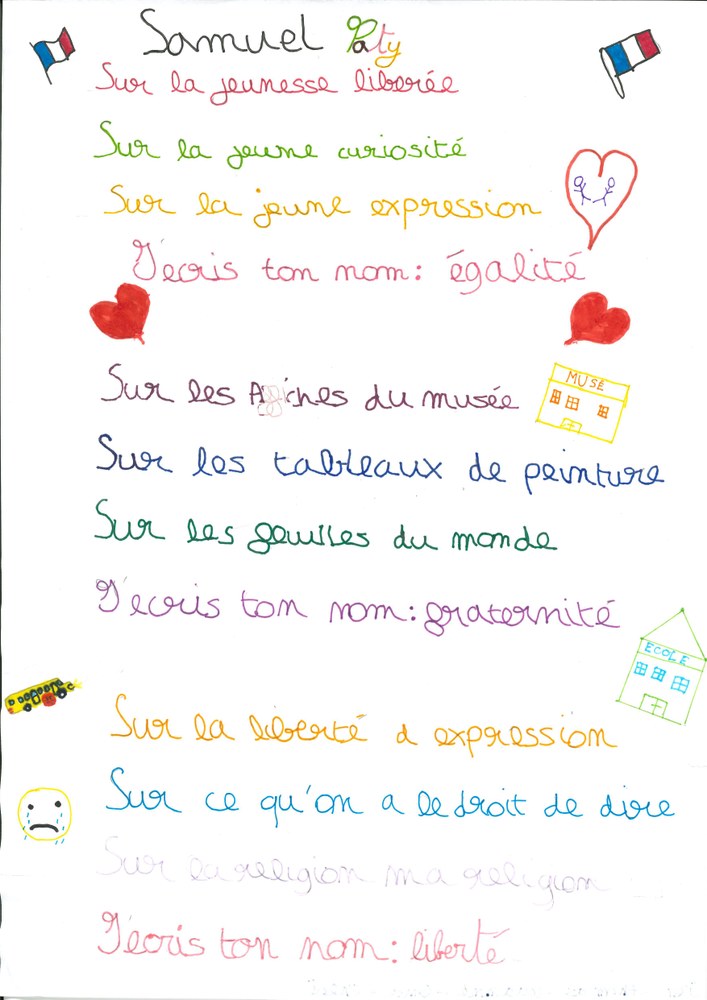 Samuel Paty
Sur la jeunesse liberée
Sur la jeune curiosité
Sur la jeune expression
J'écris ton nom: égalité
Sur les Afiches du musée
MUSÉ
Sur les tableaux de peinture
Sur les feuilles du monde
J'écris ton nom: fraternité
ECOLE
Sur la liberté d expression
Sur ce qu'on a le droit de dire
Sur la religion ma religion
J'écris ton nom: liberté